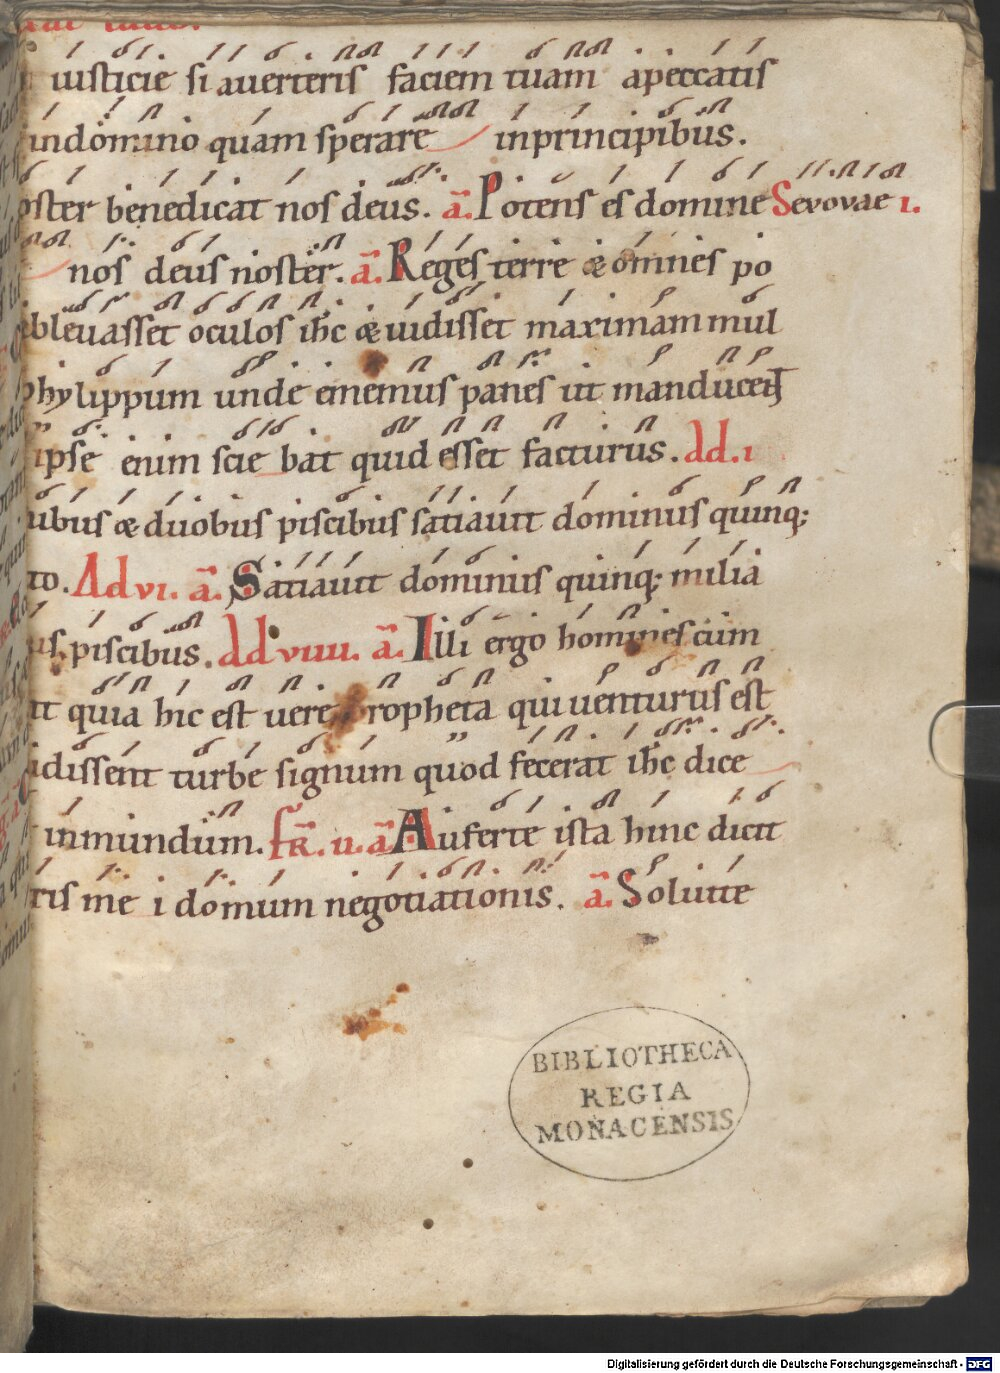 iusticie si averteris faciem tuam apeccatis
indomino quam sperare inprincipibus.
oster benedicat nos deus. a. Potens es domine Sevovae i.
nos deus noster. a. Reges terre & omnes po
blevasset oculos ihc & vidisset maximam mul
phylippum unde ememus panes ut manducent
ipse enim scie bat quid esset facturus. Ad. i
ibus & duobus piscibus satiavit dominus quinq;
to. Ad vi. a. Satiavit dominus quinq; milia
us. piscibus. Ad viiii. a. Illi ergo homines cum
nt quia hic est vere propheta qui venturus est
idissent turbe signum quod fecerat ihc dice
inmundum. fr. v. a. Auferte ista hinc dicit
ris me i domum negotiationis. a. Solvite
BIBLIOTHECA
REGIA
MONACENSIS
Digitalisierung gefördert durch die Deutsche Forschungsgemeinschaft - DFG